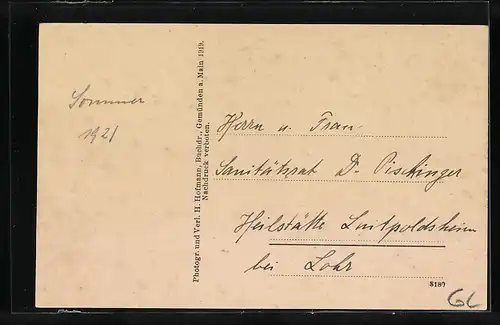 Sommer
1921
Photogr. und Verl. H. Hofmann, Buchdr., Gemünden a. Main 1919.
Nachdruck verboten.
Herrn u. Frau
Sanitätsrat D. Pischinger
Heilstätte Luitpoldsheim
bei Lohr
8180
GL